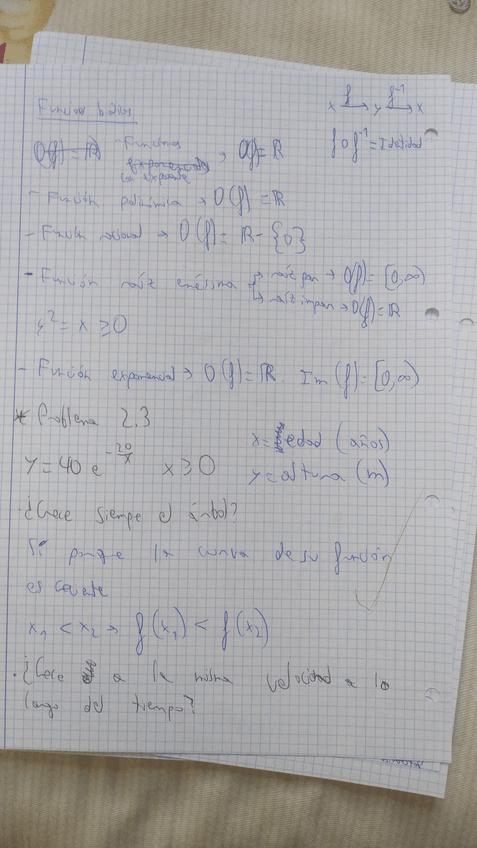 Funciones básicas
x f→ y f⁻¹→ x
f o f⁻¹ = Identidad
D(f) = ℝ - Funciones exponente → D(f) = ℝ
- Función polinómica → D(f) = ℝ
- Función racional → D(f) = ℝ - {0}
- Función raíz enésima → raíz par → D(f) = [0,∞)
→ raíz impar → D(f) = ℝ
y² = x ≥ 0
- Función exponencial → D(f) = ℝ. Im(f) = [0,∞)
* Problema 2.3
x = edad (años)
y = 40 e^(-20/x) x ≥ 0
y = altura (m)
· ¿Crece siempre el árbol?
Sí porque la curva de su función
es
x₁ < x₂ → f(x₁) < f(x₂)
· ¿Crece a la misma velocidad a lo
largo del tiempo?